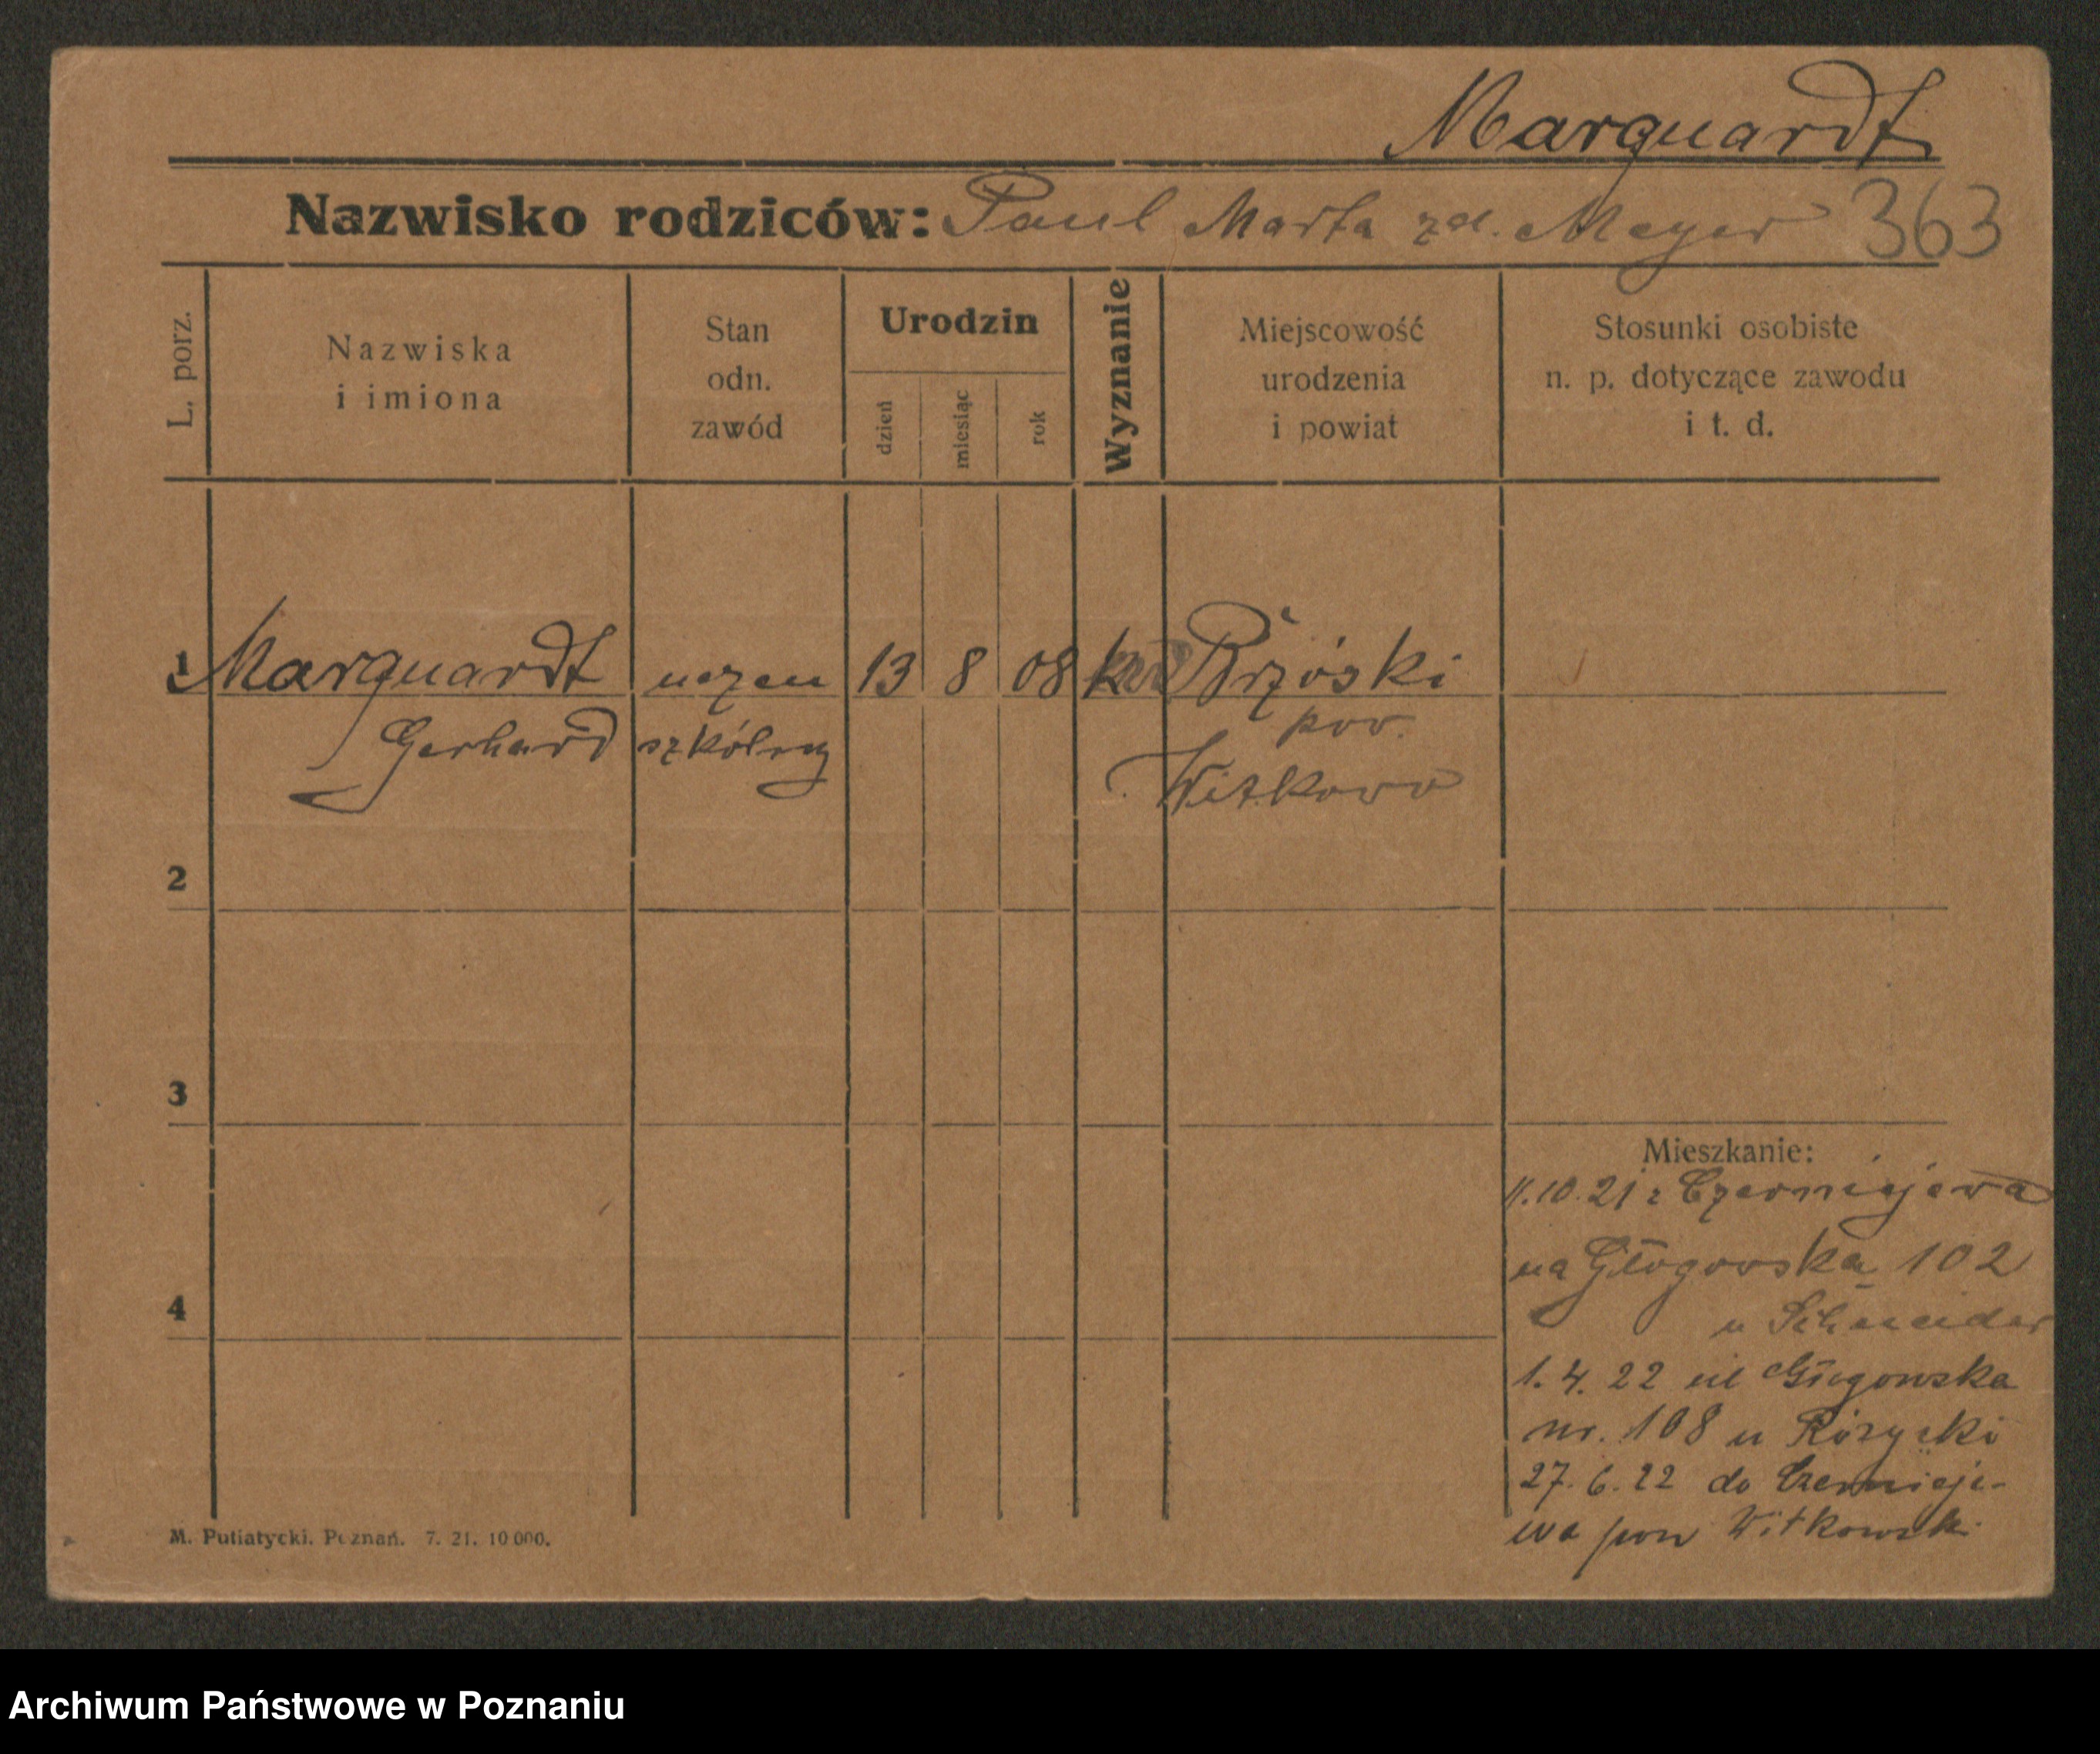 Marquardt
Nazwisko rodziców: Paul Marta zd. Meyer 363
L. porz.
Nazwiska i imiona
Stan odn. zawód
Urodzin
dzień
miesiąc
rok
Wyznanie
Miejscowość urodzenia i powiat
Stosunki osobiste n. p. dotyczące zawodu i t. d.
1 Marquardt uczen 13 8 08 Brzóski
Gerhard szkólny pow.
Witkowo
2
3
4
Mieszkanie:
11.10.21 z Czerniejewa
na Głogowska 102
u Schneider
1.4.22 ul Głogowska
nr. 108 u Różycki
27.6.22 do Czernieje-
wa pow Witkowski
M. Putiatycki. Poznań. 7. 21. 10 000.
Archiwum Państwowe w Poznaniu